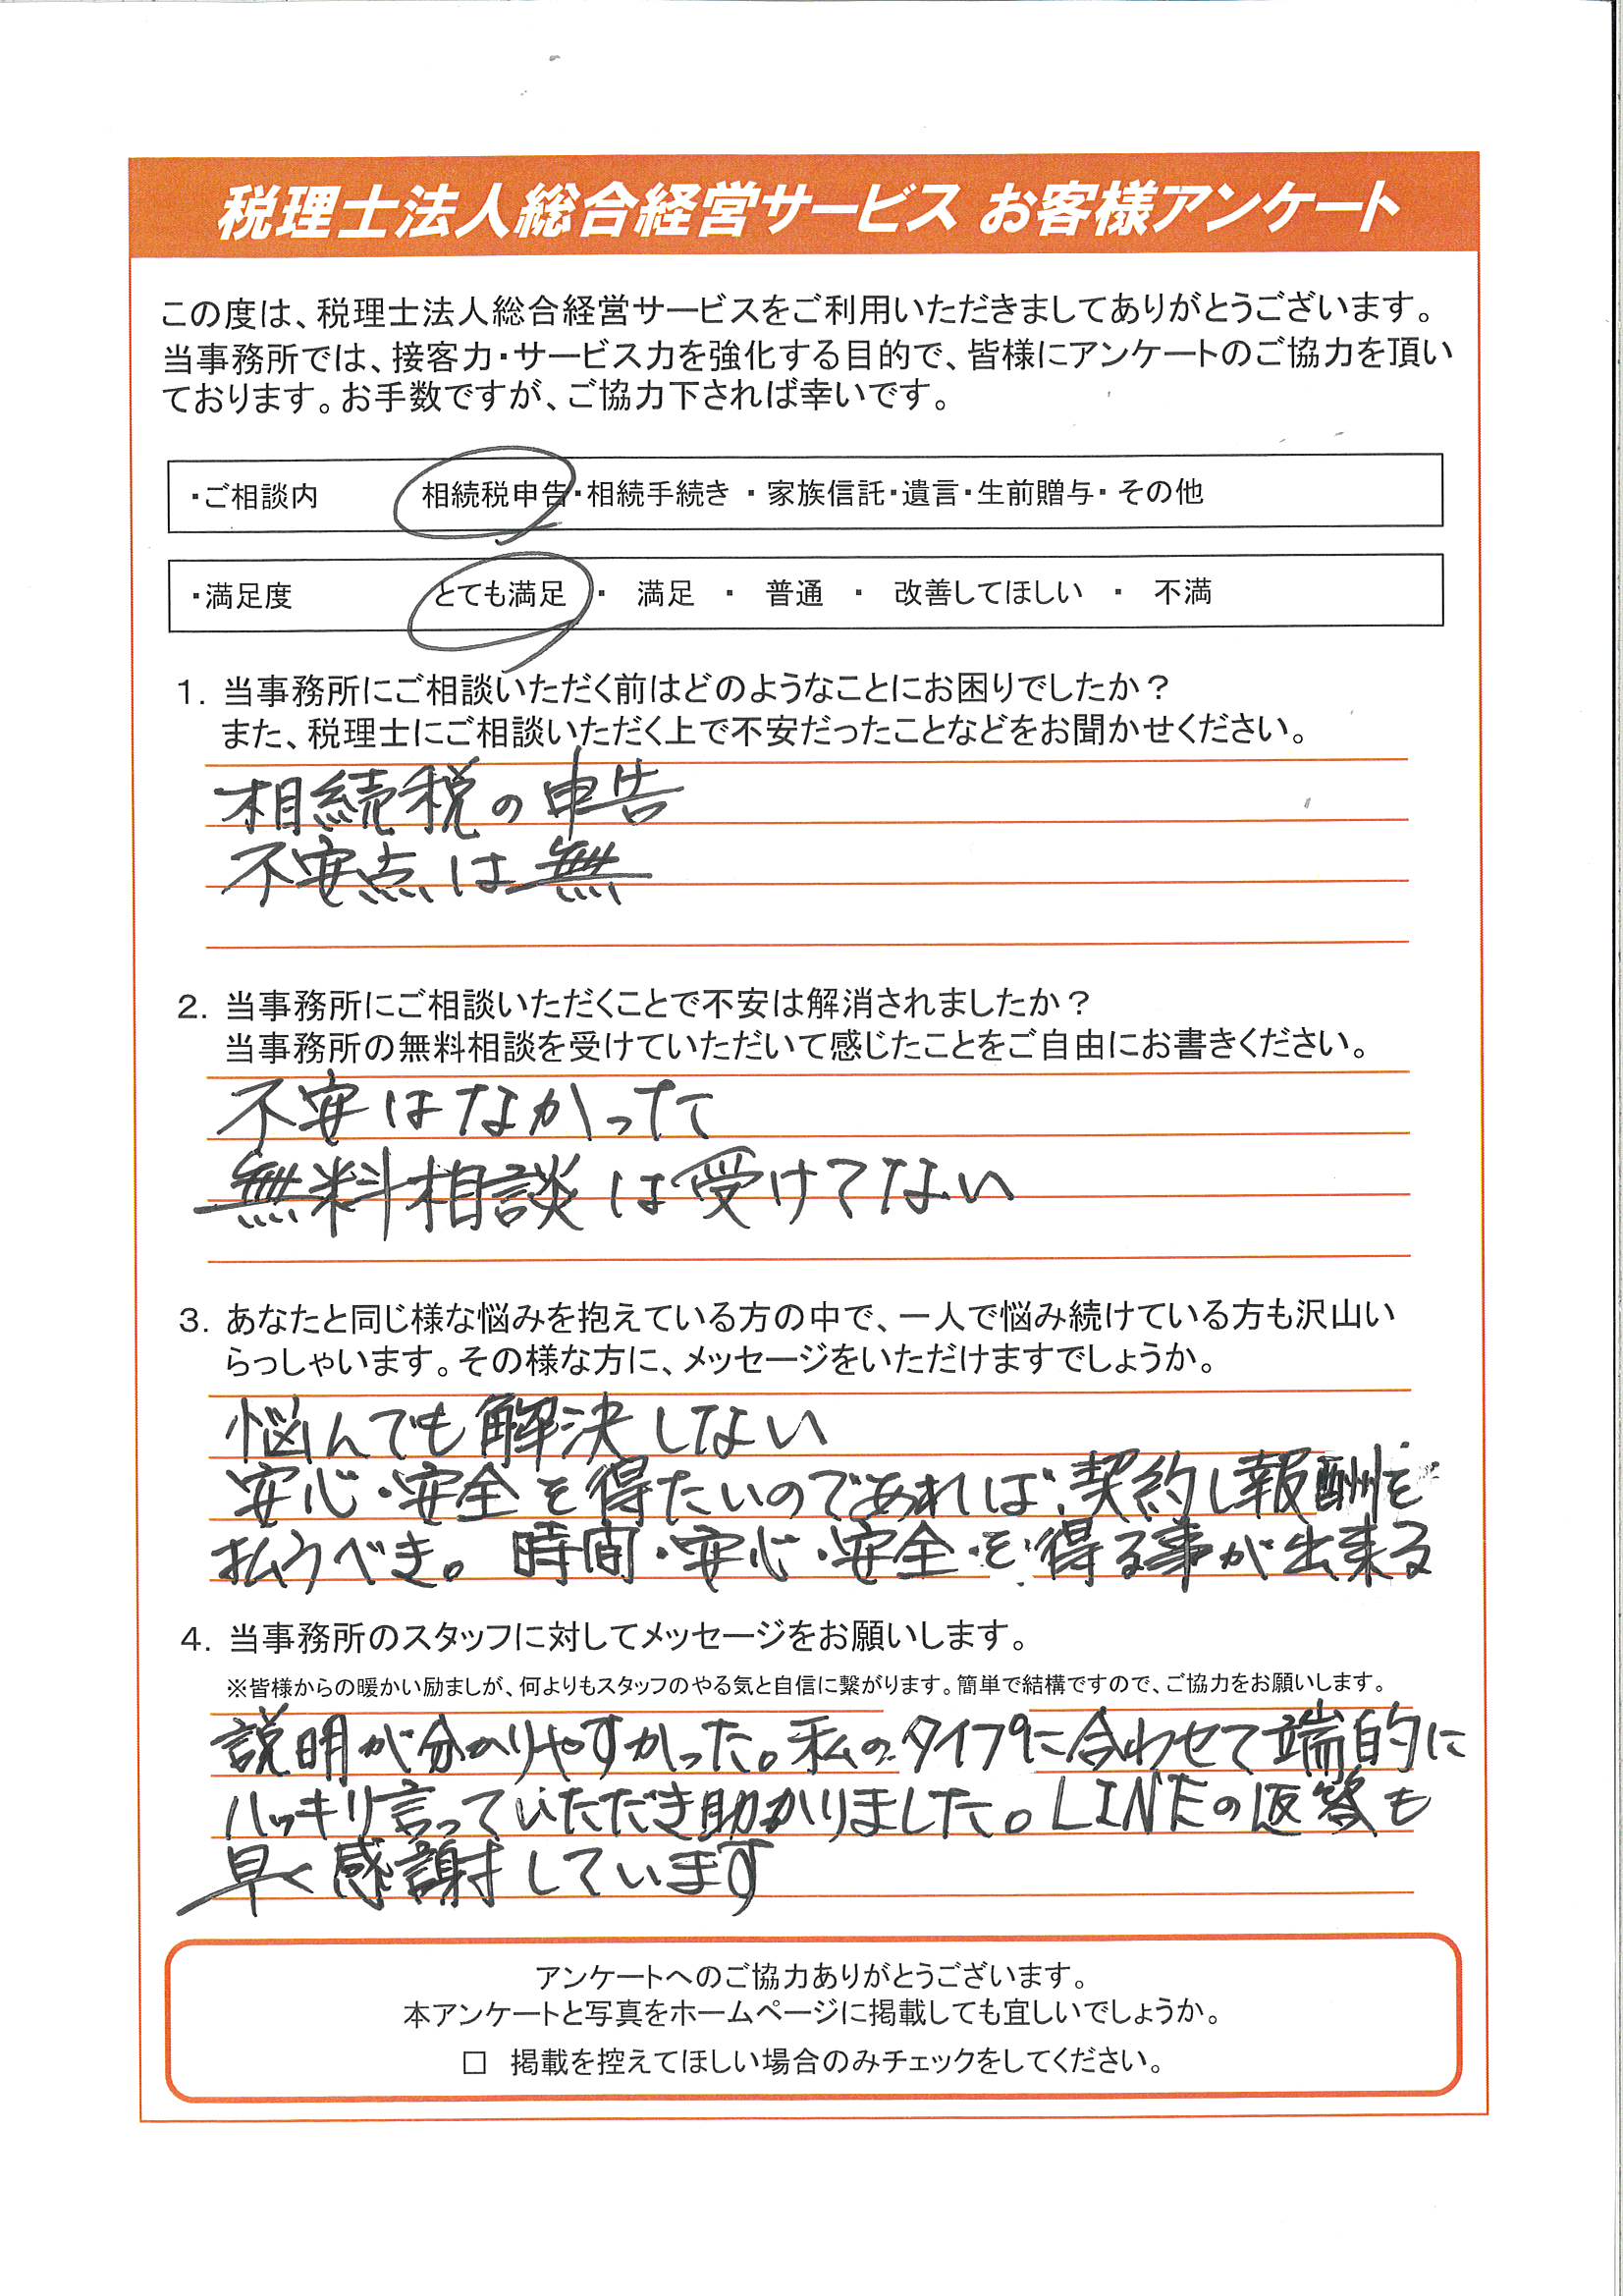 税理士法人総合経営サービス お客様アンケート
この度は、税理士法人総合経営サービスをご利用いただきましてありがとうございます。
当事務所では、接客力・サービス力を強化する目的で、皆様にアンケートのご協力を頂い
ております。お手数ですが、ご協力下されば幸いです。
・ご相談内 相続税申告・相続手続き ・ 家族信託・遺言・生前贈与・ その他
・満足度 とても満足 ・ 満足 ・ 普通 ・ 改善してほしい ・ 不満
1. 当事務所にご相談いただく前はどのようなことにお困りでしたか？
また、税理士にご相談いただく上で不安だったことなどをお聞かせください。
相続税の申告
不安点は無
2. 当事務所にご相談いただくことで不安は解消されましたか？
当事務所の無料相談を受けていただいて感じたことをご自由にお書きください。
不安はなかった
無料相談は受けてない
3. あなたと同じ様な悩みを抱えている方の中で、一人で悩み続けている方も沢山い
らっしゃいます。その様な方に、メッセージをいただけますでしょうか。
悩んでも解決しない
安心・安全を得たいのであれば、契約し報酬を
払うべき。時間・安心・安全を得る事が出来る
4. 当事務所のスタッフに対してメッセージをお願いします。
※皆様からの暖かい励ましが、何よりもスタッフのやる気と自信に繋がります。簡単で結構ですので、ご協力をお願いします。
説明が分かりやすかった。私のタイプに合わせて端的に
ハッキリ言っていただき助かりました。LINEの返答も
早く感謝しています
アンケートへのご協力ありがとうございます。
本アンケートと写真をホームページに掲載しても宜しいでしょうか。
□ 掲載を控えてほしい場合のみチェックをしてください。